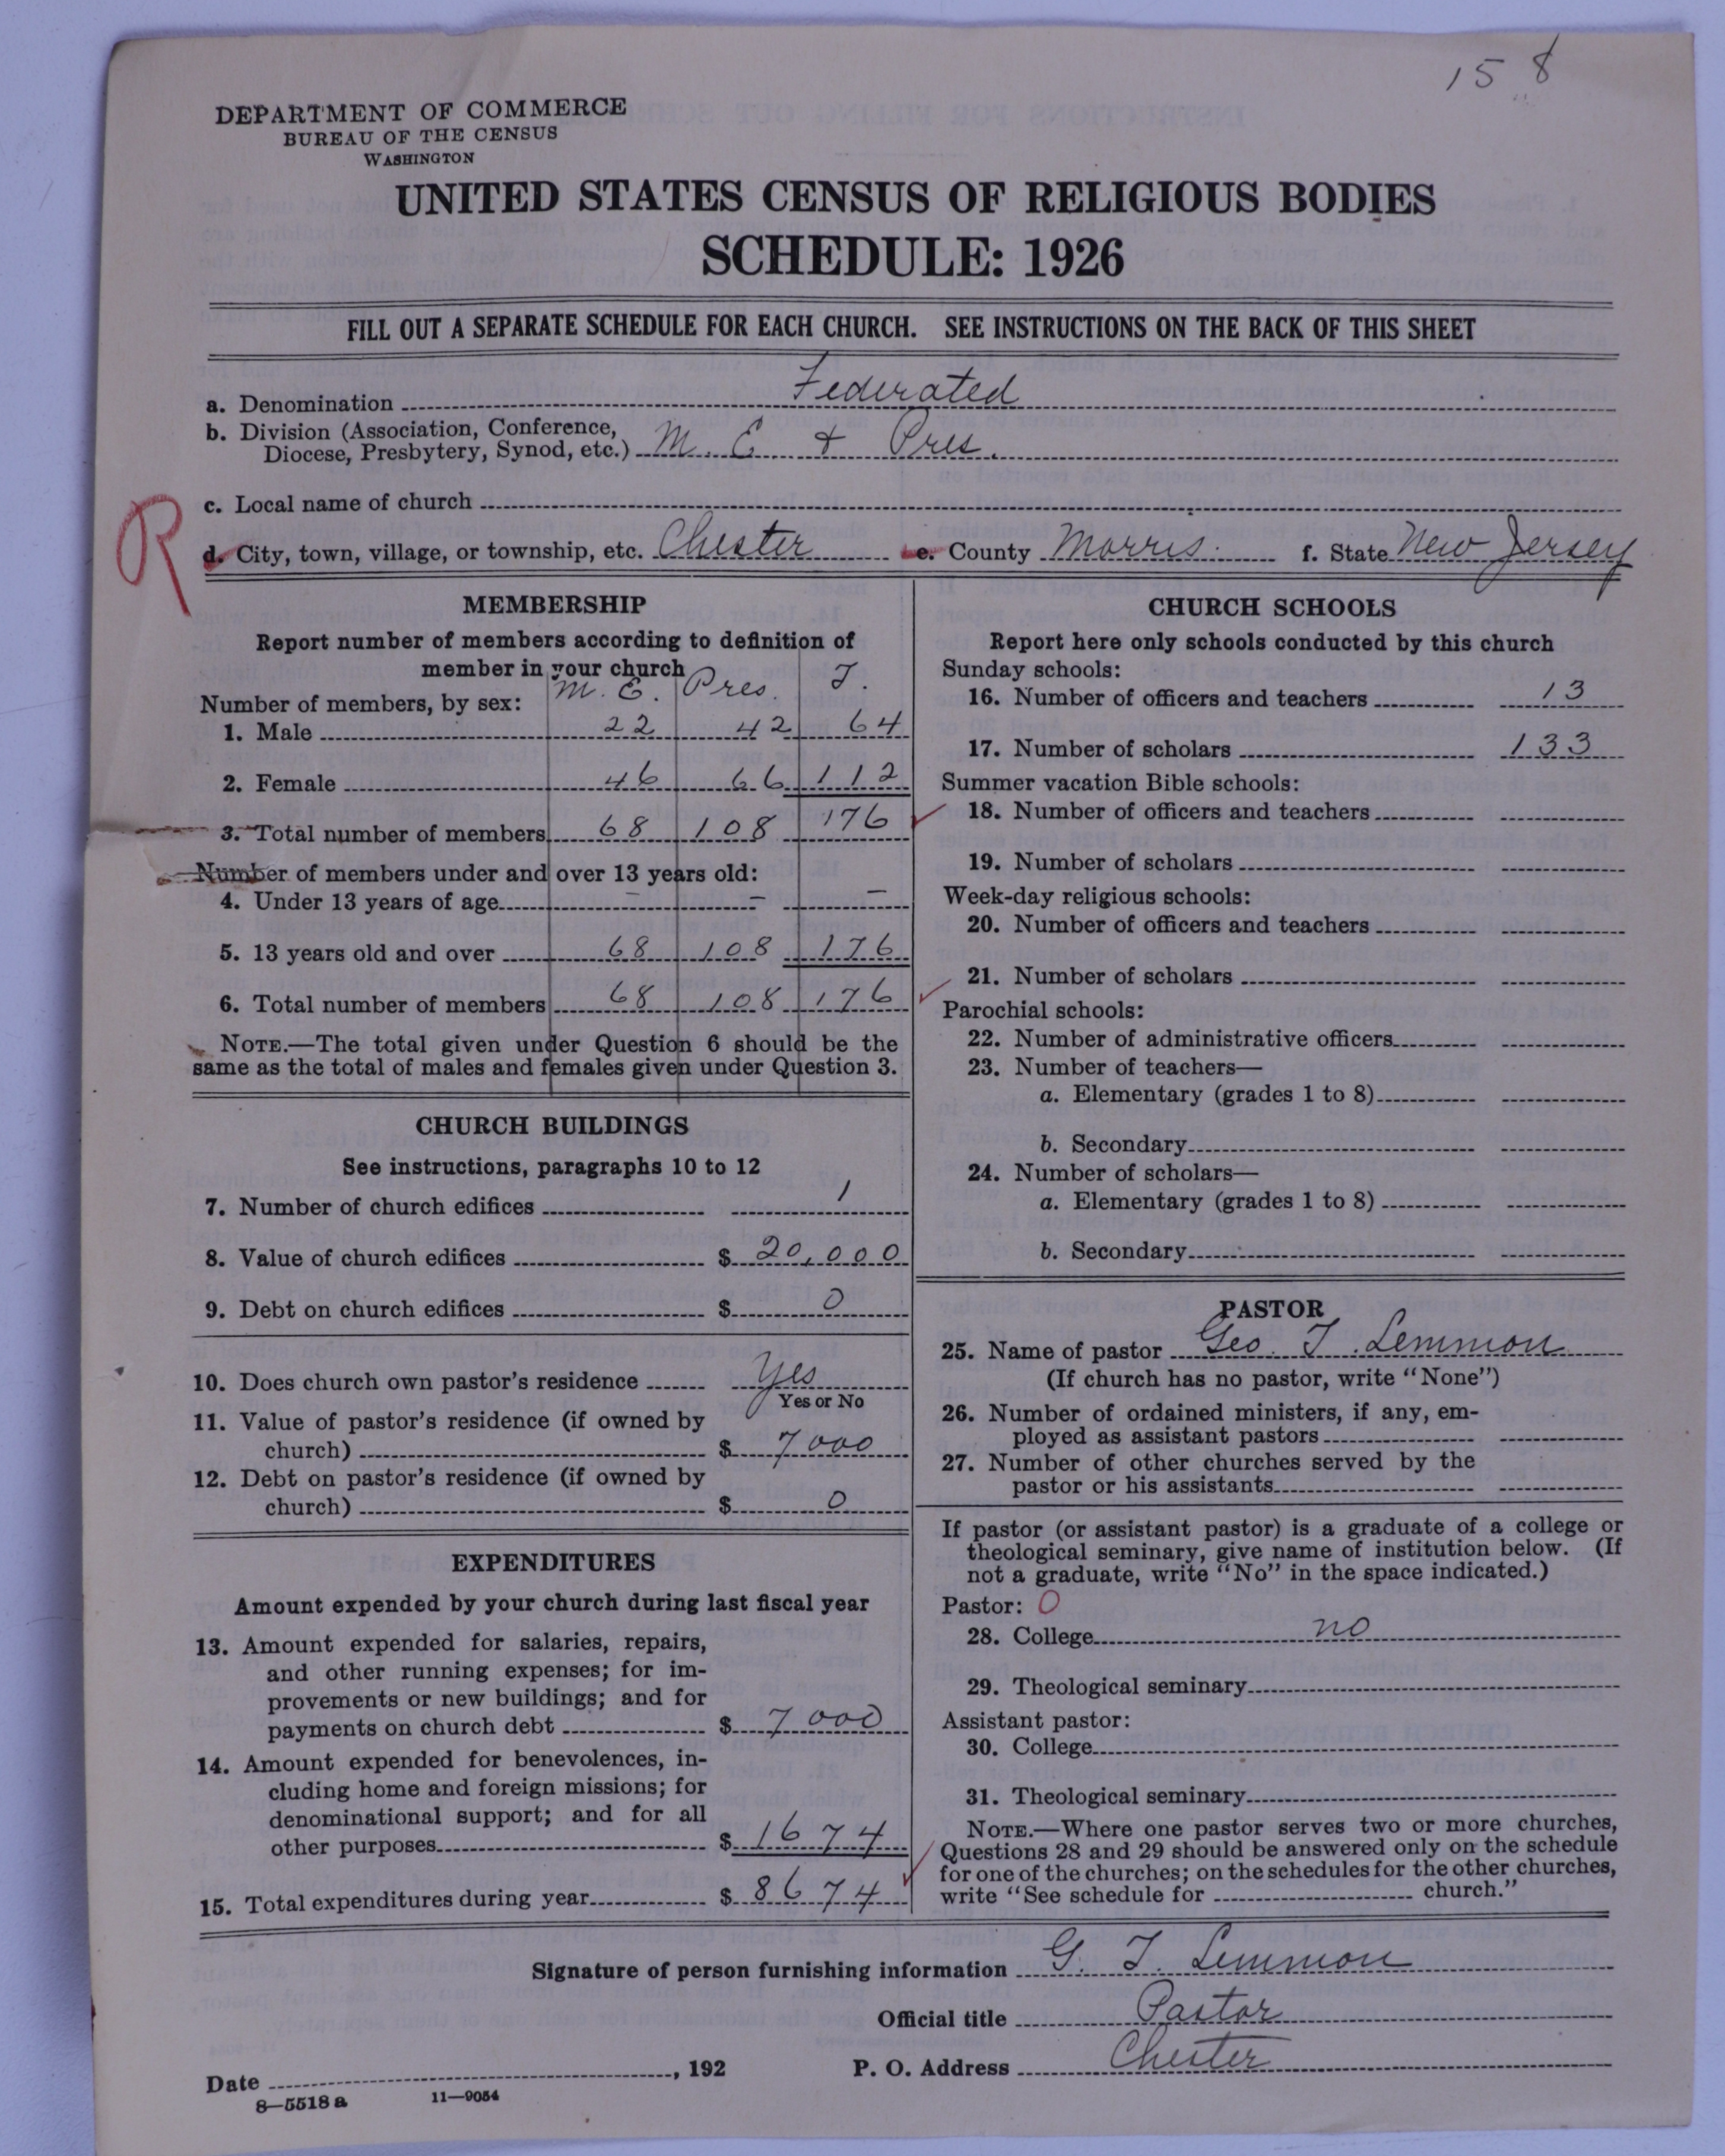 15 8
DEPARTMENT OF COMMERCE
BUREAU OF THE CENSUS
WASHINGTON
UNITED STATES CENSUS OF RELIGIOUS BODIES
SCHEDULE: 1926
FILL OUT A SEPARATE SCHEDULE FOR EACH CHURCH. SEE INSTRUCTIONS ON THE BACK OF THIS SHEET
a. Denomination Federated
b. Division (Association, Conference,
Diocese, Presbytery, Synod, etc.) M. E. & Pres.
c. Local name of church
R
d. City, town, village, or township, etc. Chester e. County Morris. f. State New Jersey
MEMBERSHIP
Report number of members according to definition of
member in your church
M. E. Pres. T.
Number of members, by sex:
1. Male 22 42 64
2. Female 46 66 112
3. Total number of members 68 108 176
Number of members under and over 13 years old:
4. Under 13 years of age - - -
5. 13 years old and over 68 108 176
6. Total number of members 68 108 176
NOTE.—The total given under Question 6 should be the
same as the total of males and females given under Question 3.
CHURCH BUILDINGS
See instructions, paragraphs 10 to 12
7. Number of church edifices 1
8. Value of church edifices $ 20,000
9. Debt on church edifices $ 0
10. Does church own pastor's residence Yes
Yes or No
11. Value of pastor's residence (if owned by
church) $ 7000
12. Debt on pastor's residence (if owned by
church) $ 0
EXPENDITURES
Amount expended by your church during last fiscal year
13. Amount expended for salaries, repairs,
and other running expenses; for im-
provements or new buildings; and for
payments on church debt $ 7000
14. Amount expended for benevolences, in-
cluding home and foreign missions; for
denominational support; and for all
other purposes $ 1674
15. Total expenditures during year $ 8674
CHURCH SCHOOLS
Report here only schools conducted by this church
Sunday schools:
16. Number of officers and teachers 13
17. Number of scholars 133
Summer vacation Bible schools:
18. Number of officers and teachers
19. Number of scholars
Week-day religious schools:
20. Number of officers and teachers
21. Number of scholars
Parochial schools:
22. Number of administrative officers
23. Number of teachers—
a. Elementary (grades 1 to 8)
b. Secondary
24. Number of scholars—
a. Elementary (grades 1 to 8)
b. Secondary
PASTOR
25. Name of pastor Geo. T. Lemmon
(If church has no pastor, write "None")
26. Number of ordained ministers, if any, em-
ployed as assistant pastors
27. Number of other churches served by the
pastor or his assistants
If pastor (or assistant pastor) is a graduate of a college or
theological seminary, give name of institution below. (If
not a graduate, write "No" in the space indicated.)
Pastor: 0
28. College no
29. Theological seminary
Assistant pastor:
30. College
31. Theological seminary
NOTE.—Where one pastor serves two or more churches,
Questions 28 and 29 should be answered only on the schedule
for one of the churches; on the schedules for the other churches,
write "See schedule for church."
Signature of person furnishing information G. T. Lemmon
Official title Pastor
Date , 192 P. O. Address Chester
8—5518 a 11—9054